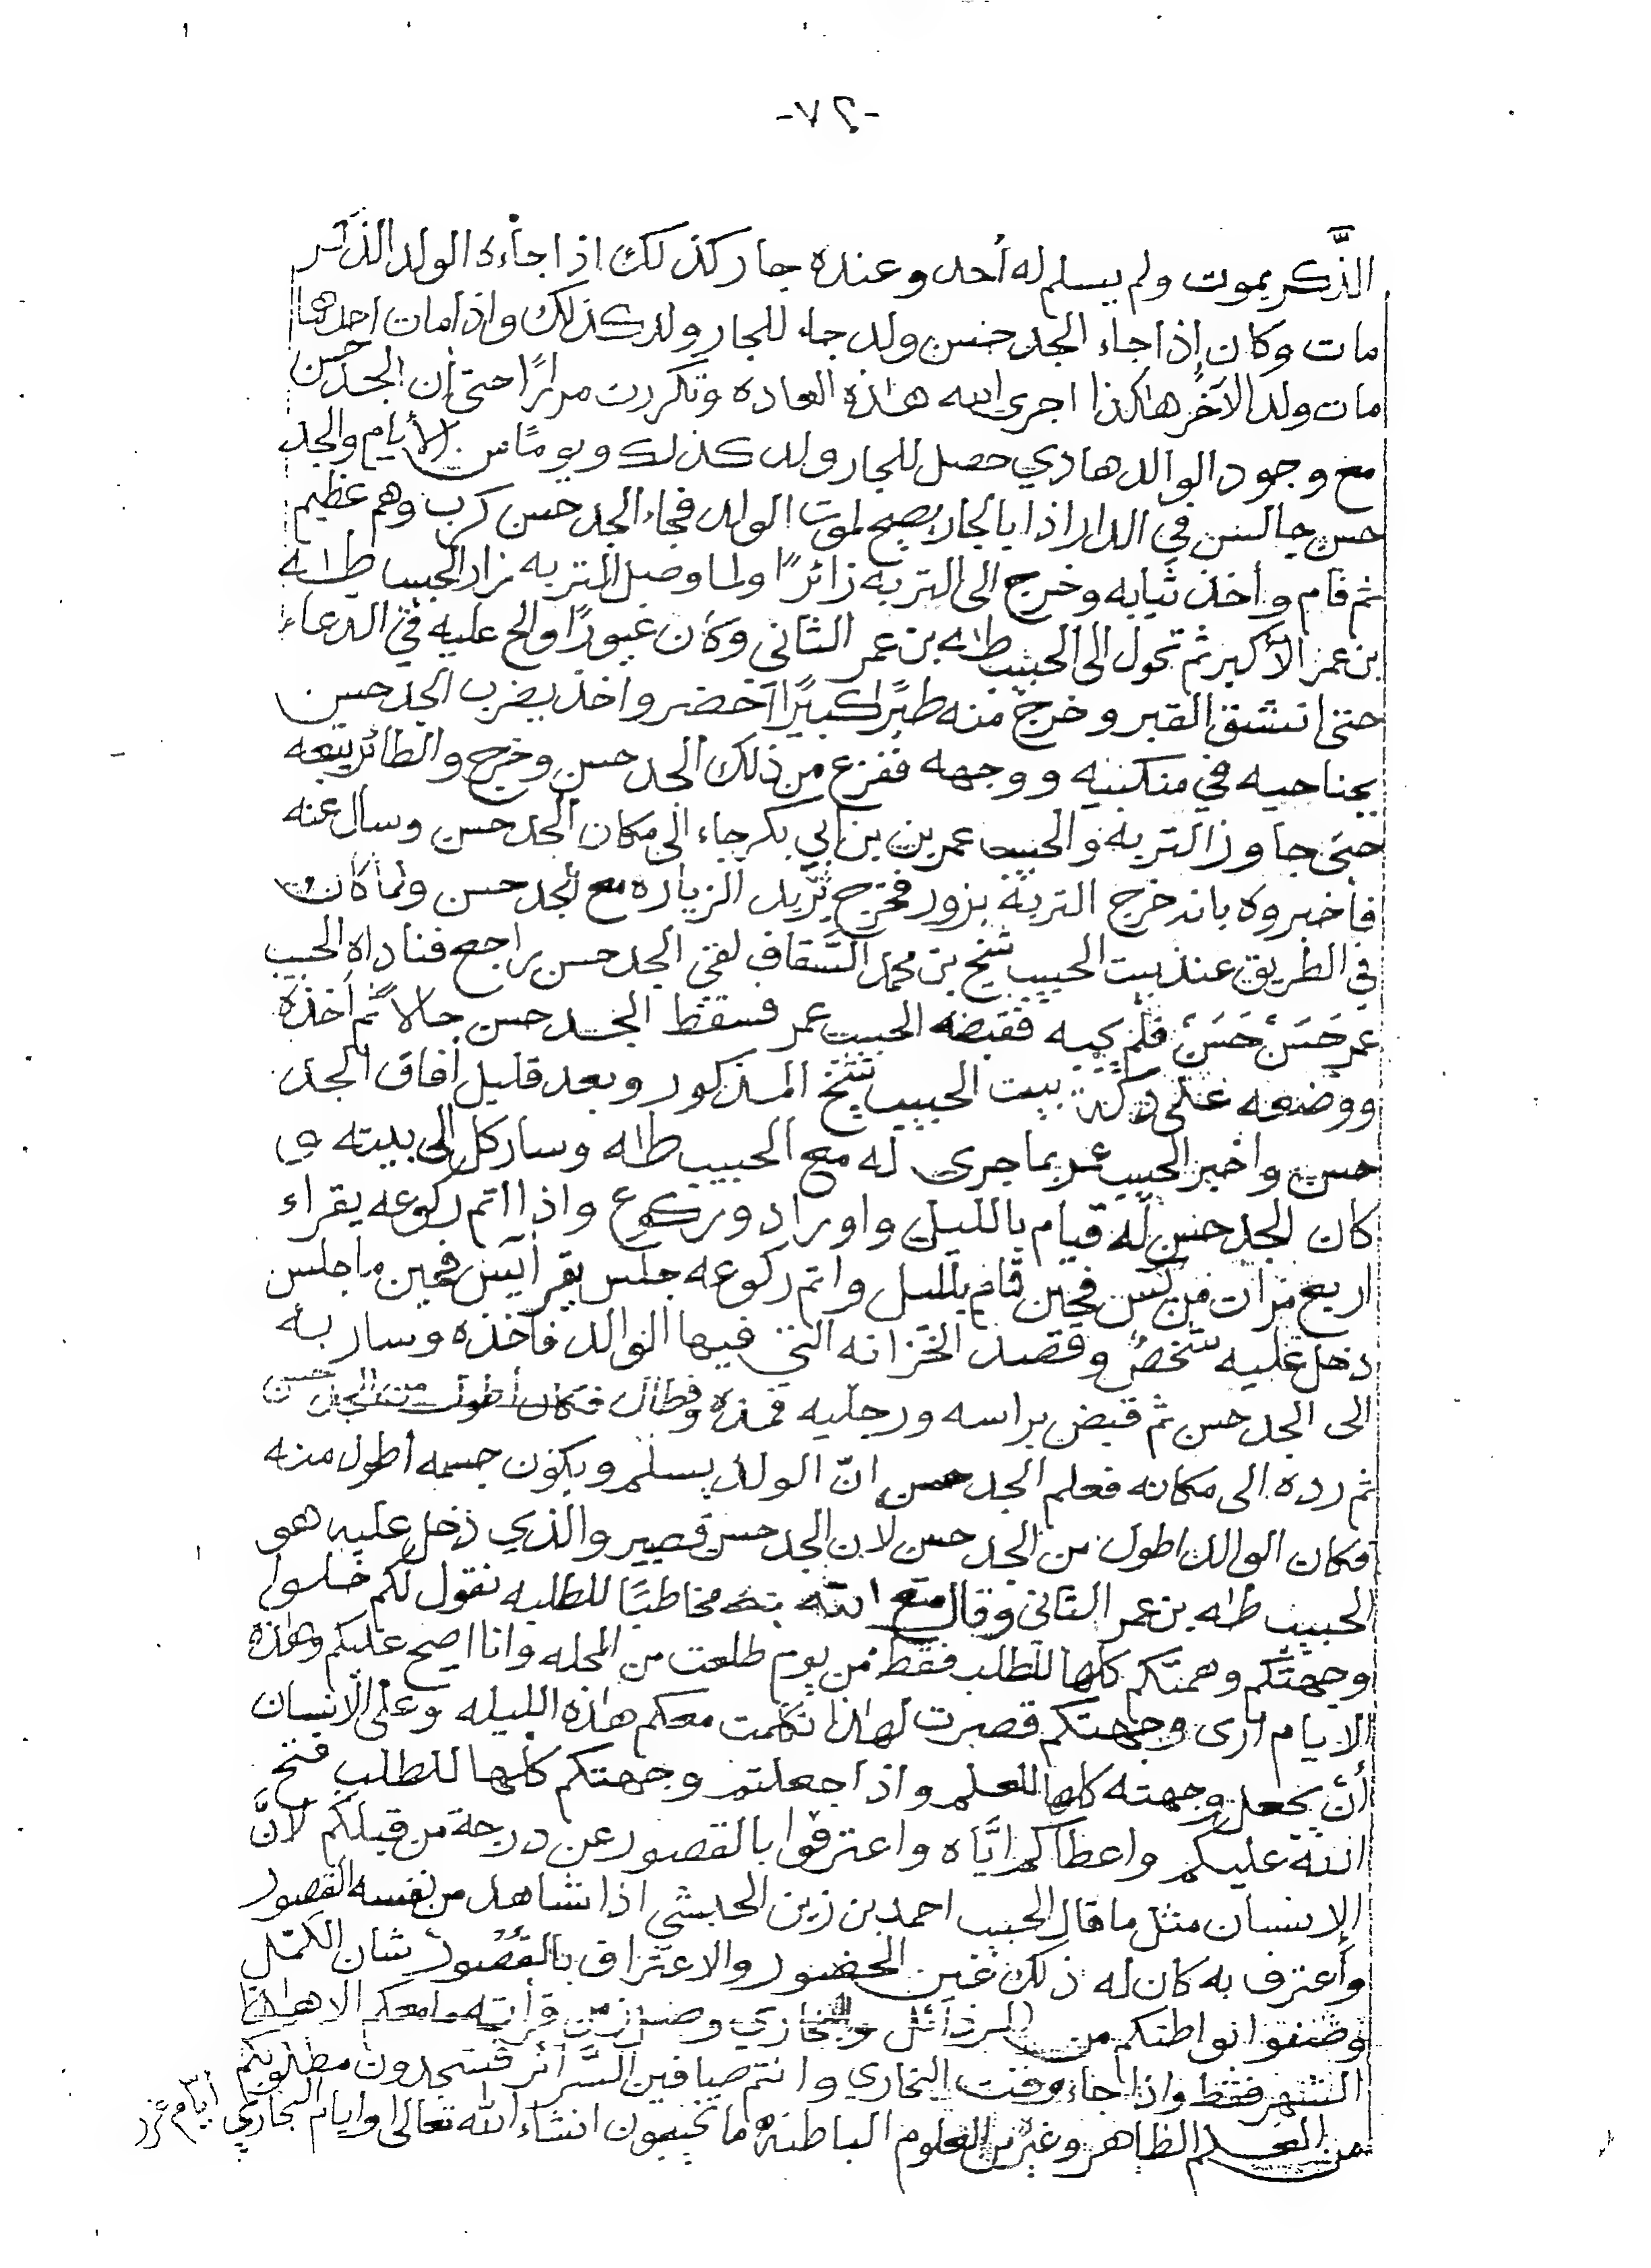 -٧٢-
الذَّكر يموت ولم يسلم له أحد وعنده جار كذلك اذا جاءه الولد الذكر
مات وكان إذا جاء الجد حسن ولد جاء للجار ولد كذلك واذا مات احدهما
مات ولد الآخر هاكذا اجرى الله هذه العاده وتكررت مرارًا حتى أن الجد حسن
مع وجود الوالد هادي حصل للجار ولد كذلك ويومًا من الأيام والجد
حسن جالس في الدار اذا بالجار يصيح لموت الولد فجاء الجد حسن كرب وهم عظيم
ثم قام وأخذ ثيابه وخرج الى التربه زائرًا ولما وصل التربه زار الحبيب طه
بن عمر الأكبر ثم تحول الى الحبيب طه بن عمر الثاني وكان غيورًا والح عليه في الدعاء
حتى انشق القبر وخرج منه طيرًا كبيرًا أخضر واخذ يضرب الجد حسن
بجناحيه في منكبيه ووجهه ففزع من ذلك الجد حسن وخرج والطائر يتبعه
حتى جاوز التربه والحبيب عمر بن بن أبي بكر جاء الى مكان الجد حسن وسال عنه
فأخبروه بانه خرج التربة يزور فخرج يريد الزياره مع الجد حسن ولما كان
في الطريق عند بيت الحبيب شيخ بن محمد السَّقاف لقي الجد حسن راجع فناداه الحبيب
عمر حَسَنْ حَسَنْ فلم يجبه فقبضه الحبيب عمر فسقط الجد حسن حالاً ثم أخذه
ووضعه على دكة بيت الحبيب شيخ المذكور وبعد قليل أفاق الجد
حسن واخبر الحبيب عمر بما جرى له مع الحبيب طه وسار كل إلى بيته و
كان الجد حسن له قيام بالليل واوراد وركوع واذا اتم ركوعه يقراء
اربع مرات من يس فحين قام بالليل واتم ركوعه جلس يقرأ يس فحين ما جلس
دخل عليه شخصٌ وقصد الخزانه التي فيها الوالد فأخذه وسار به
الى الجد حسن ثم قبض براسه ورجليه فمده وطال فكان أطول من الجد حسن
ثم رده الى مكانه فعلم الجد حسن انّ الولد يسلم ويكون جسمه أطول منه
فكان الوالد اطول من الجد حسن لان الجد حسن قصير والذي دخل عليه هو
الحبيب طه بن عمر الثاني وقال متع الله به مخاطبًا للطلبه نقول لكم خلوا
وجهتكم وهمتكم كلها للطلب فقط من يوم طلعت من المحله وانا اصيح عليكم وهذه
الايام أرى وجهتكم قصرت لهذا تكلمت معكم هذه الليله وعلى الانسان
أن يجعل وجهته كلها للعلم واذا جعلتم وجهتكم كلها للطلب فتح
الله عليكم واعطاكم ايَّاه واعترفوا بالقصور عن درجة من قبلكم لأنَّ
الإنسان مثل ما قال الحبيب احمد بن زين الحبشي اذا شاهد من نفسه القصور
وأعترف به كان له ذلك عين الحضور والاعتراف بالقصور شان الكمّل
وصفوا بواطنكم من الرذائل والبخاري قرأته معكم الا هذا
الشهر فقط واذا جاء وقت البخاري وانتم صافين السَّرائر فستجدون مطلوبكم
من العلم الظاهر وغيره من العلوم الباطنة ما تحبون انشاء الله تعالى وايام البخاري أيام غرر